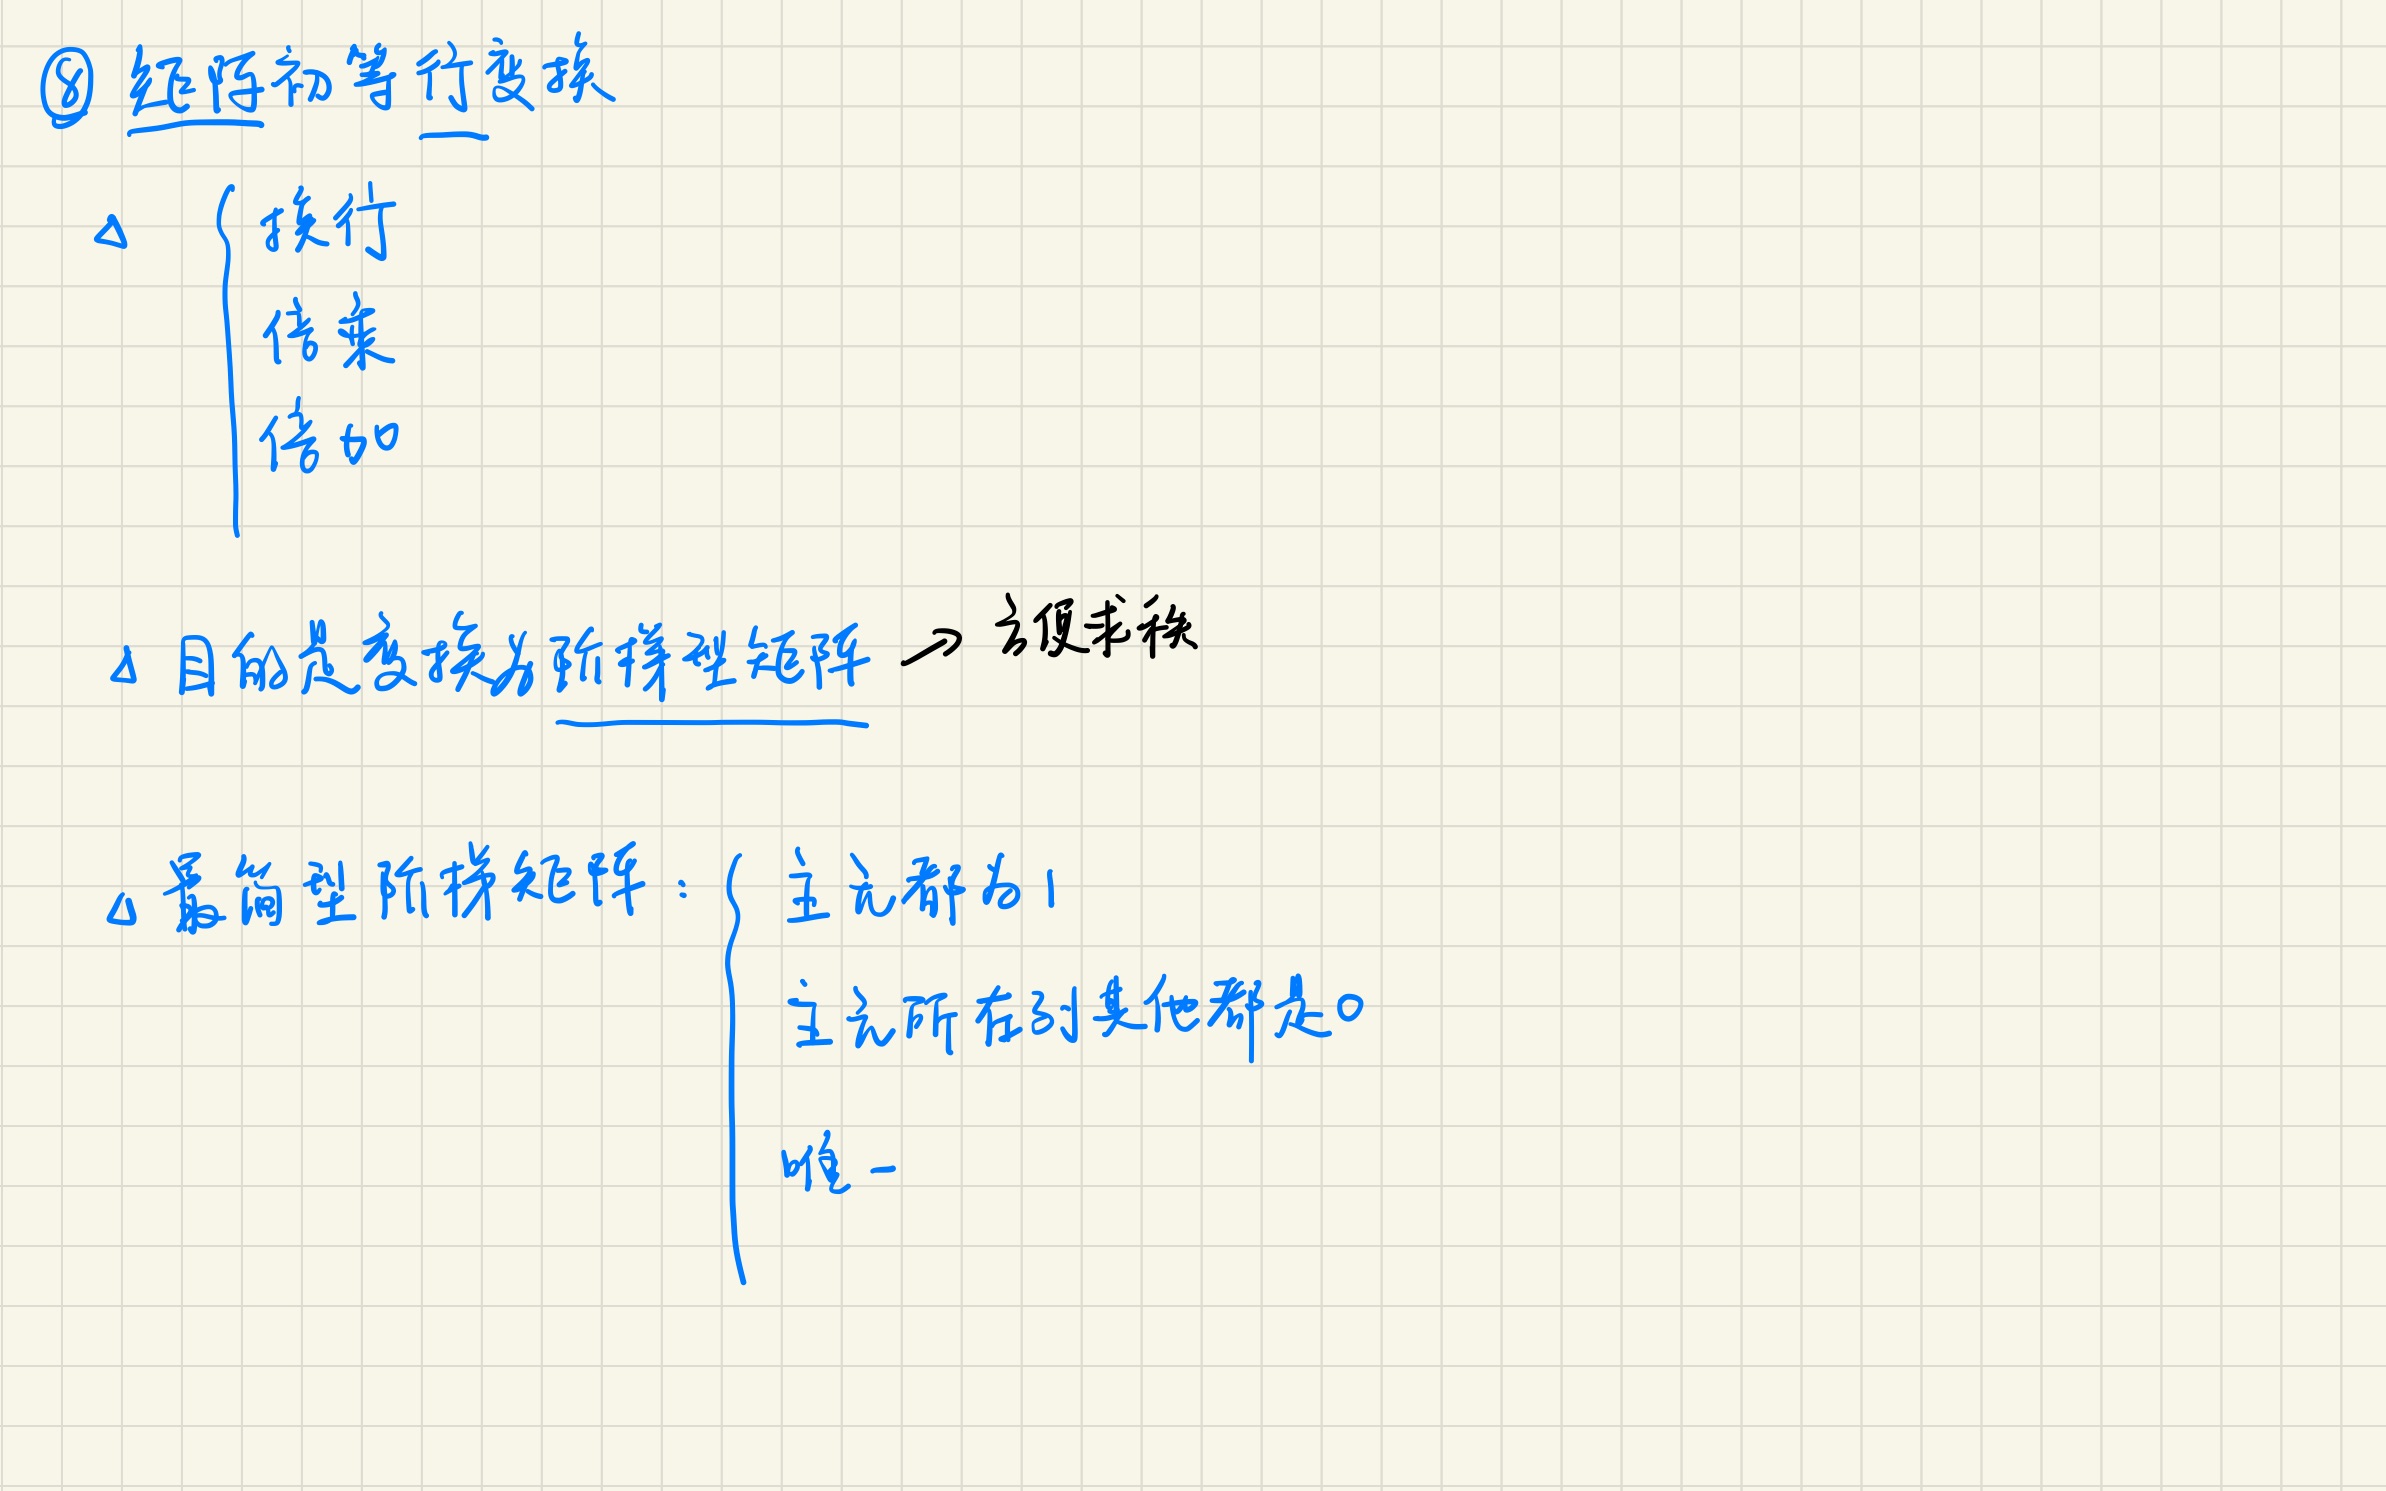 ⑧ 矩阵初等行变换
△ 换行
倍乘
倍加
△ 目的是变换成阶梯型矩阵 → 方便求秩
△ 最简型阶梯矩阵: 主元都为1
主元所在列其他都是0
唯一